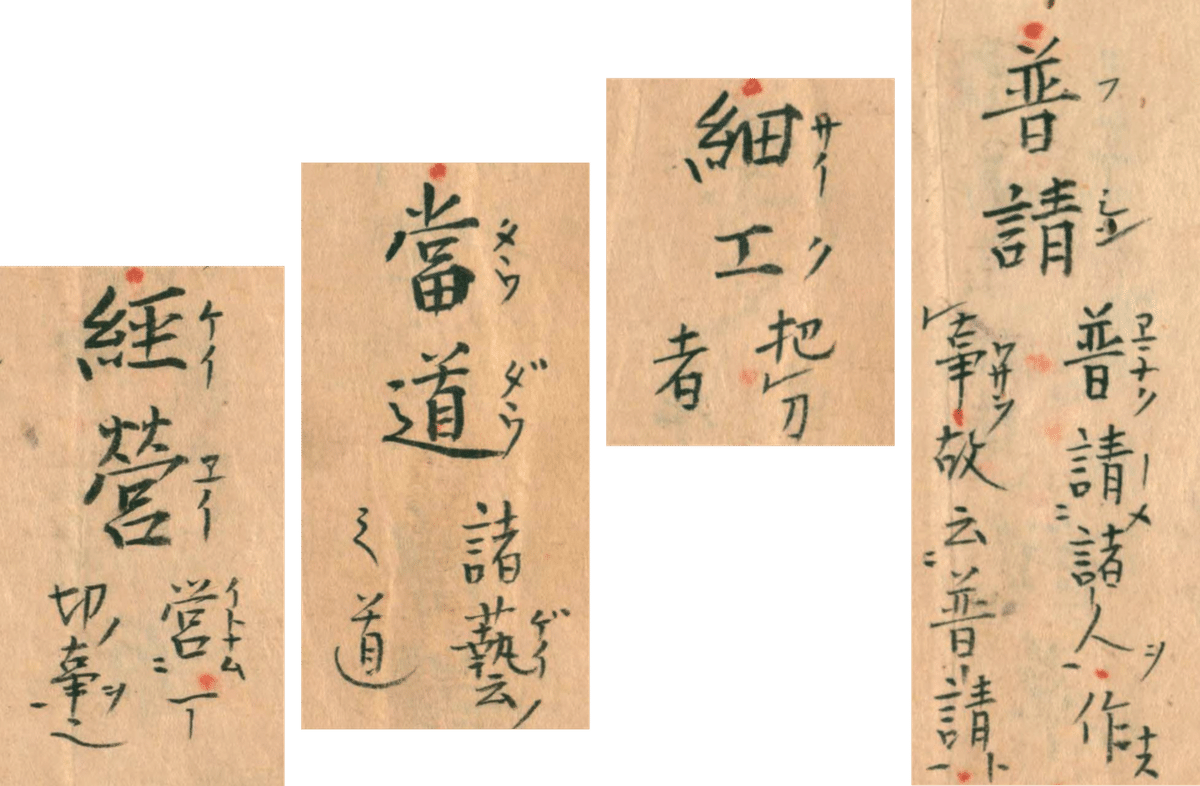 普請
フシン
普請諸人ヲ作ナス
事ワサヲ故云普請ト
細工
サイク
把レ刀
者
當道
タウダウ
諸藝ゲイノ
之道
經營
ケイエイ
營イトナム一
切ノ事ヲ